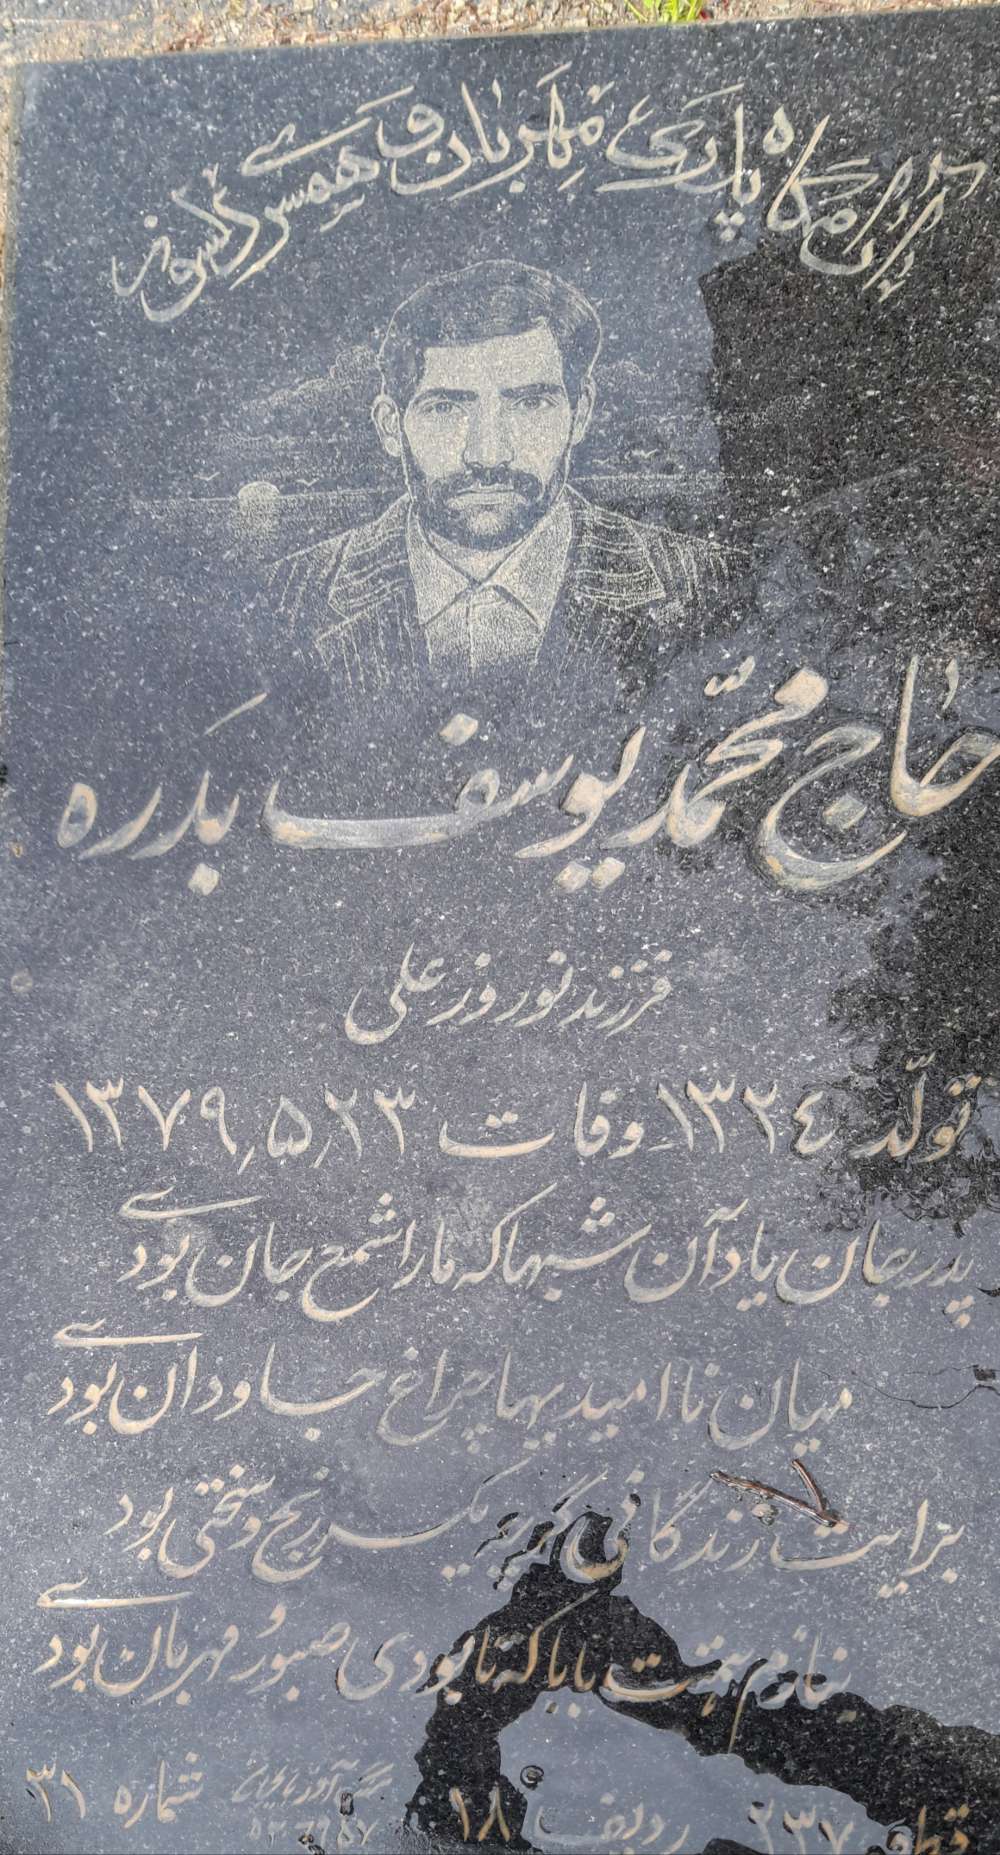 آرامگاه پدری مهربان و همسری دلسوز
حاج محمّد یوسف بَدره
فرزند نوروز علی
تولّد ۱۳۲۴ وفات ۱۳۷۹٫۵٫۲۳
پدر جان یاد آن شبها که ما را شمع جان بودی
میان ناامیدیها چراغ جاودان بودی
برایت زندگانی گرچه یکسر رنج و سختی بود
بنازم همّت بابا که تا بودی صبور و مهربان بودی
قطعه ۲۳۷ ردیف ۱۸ شماره ۳۱